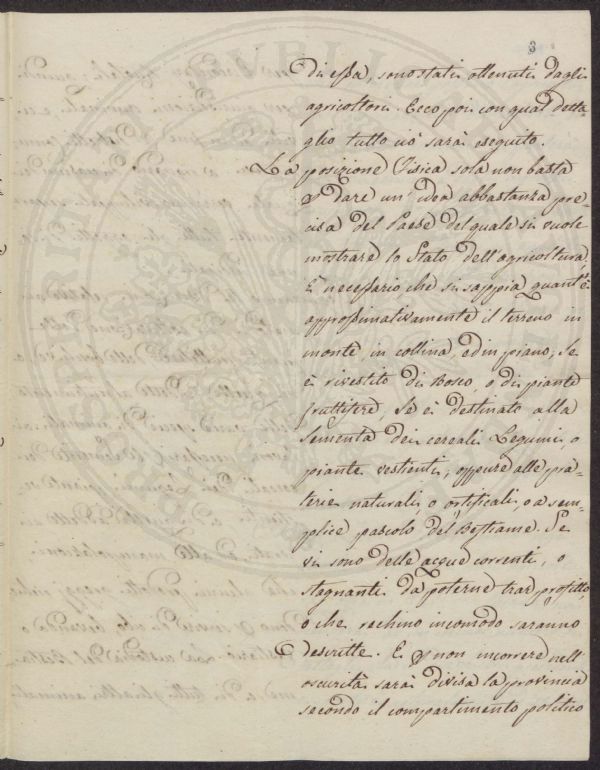 3
di essa, sono stati ottenuti dagli
agricoltori. Ecco poi con qual detta-
glio tutto ciò sarà eseguito.
La posizione Fisica sola non basta
p dare un'idea abbastanza pre-
cisa del Paese del quale si vuole
mostrare lo Stato dell'agricoltura.
È necessario che si sappia quant'è
approssimativamente il terreno in
monte, in collina, ed in piano; Se
è rivestito di Bosco, o di piante
fruttifere, Se è destinato alla
Sementa dei cereali Legumi, o
piante vestienti, oppure alle pra-
terie naturali, o artificali, o a sem-
plice pascolo del Bestiame. Se
vi sono delle acque correnti, o
stagnanti da poterne trar profitto,
o che rechino incomodo saranno
descritte. E p non incorrere nell'
oscurità sarà divisa la provincia
secondo il compartimento politico